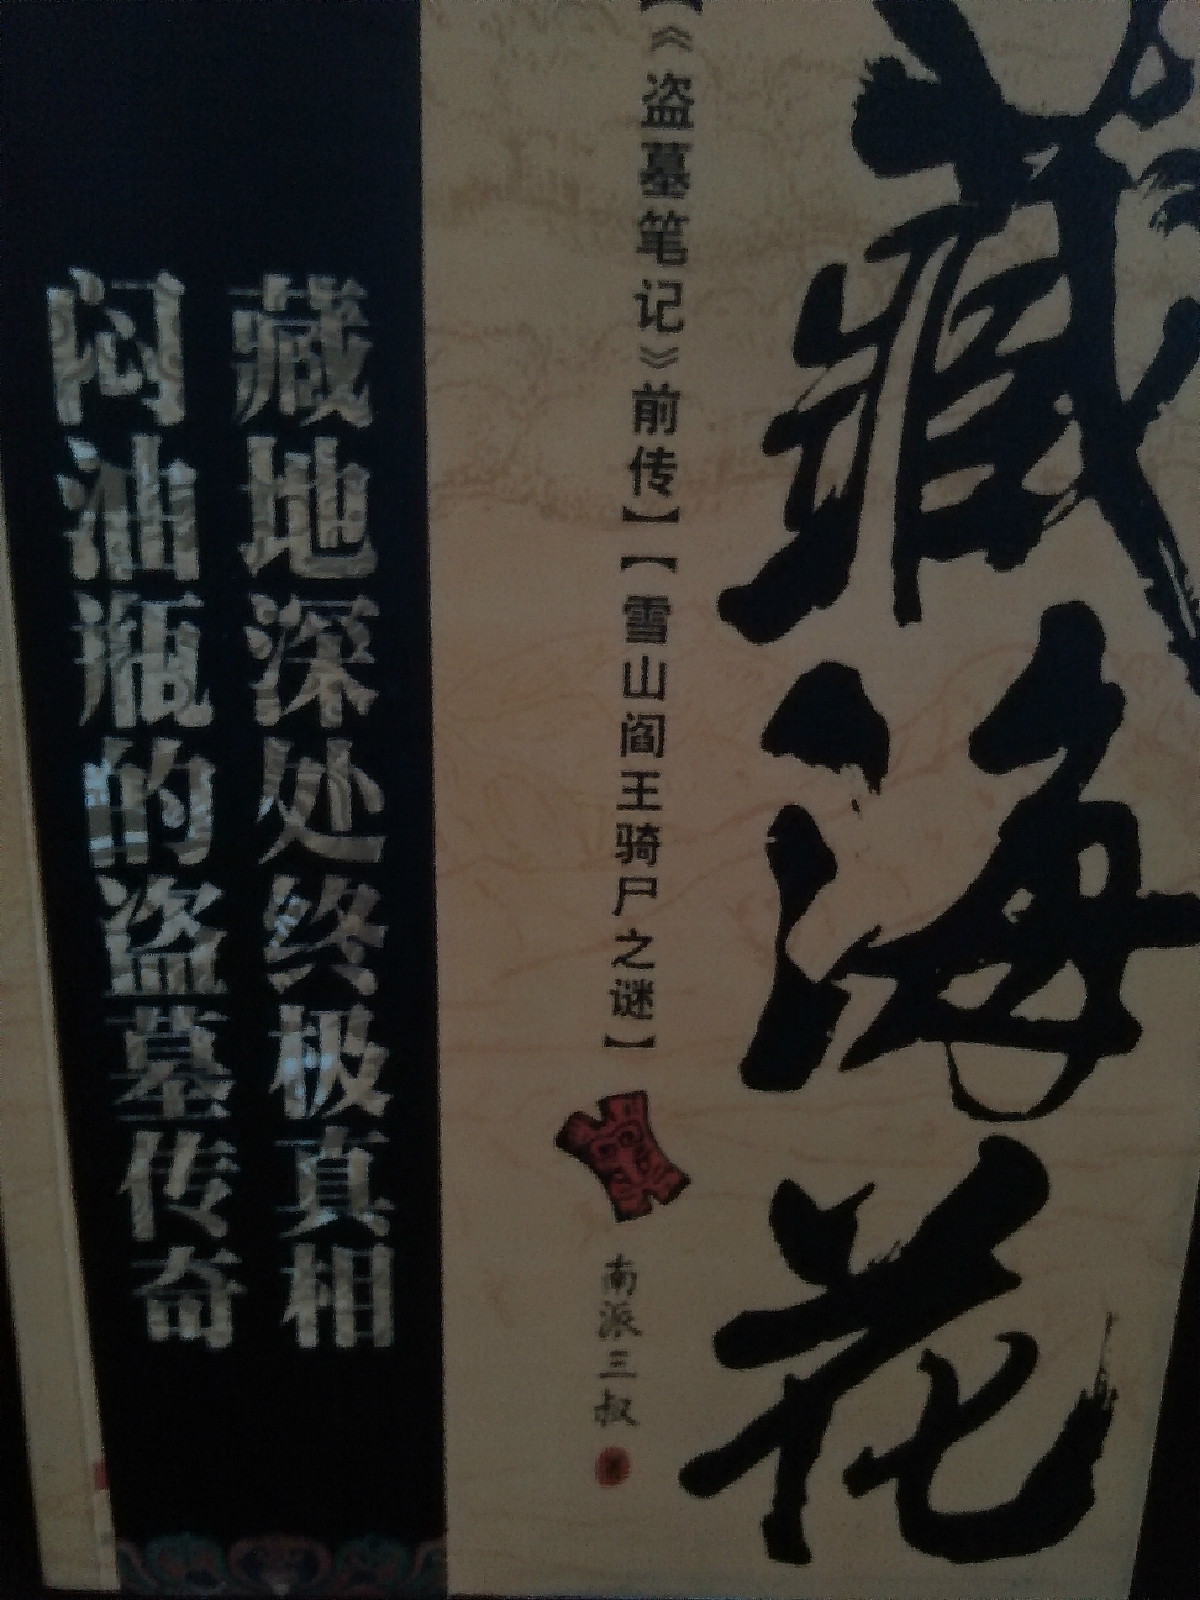 藏海花
【《盗墓笔记》前传】【雪山阎王骑尸之谜】
南派三叔
藏地深处终极真相
闷油瓶的盗墓传奇